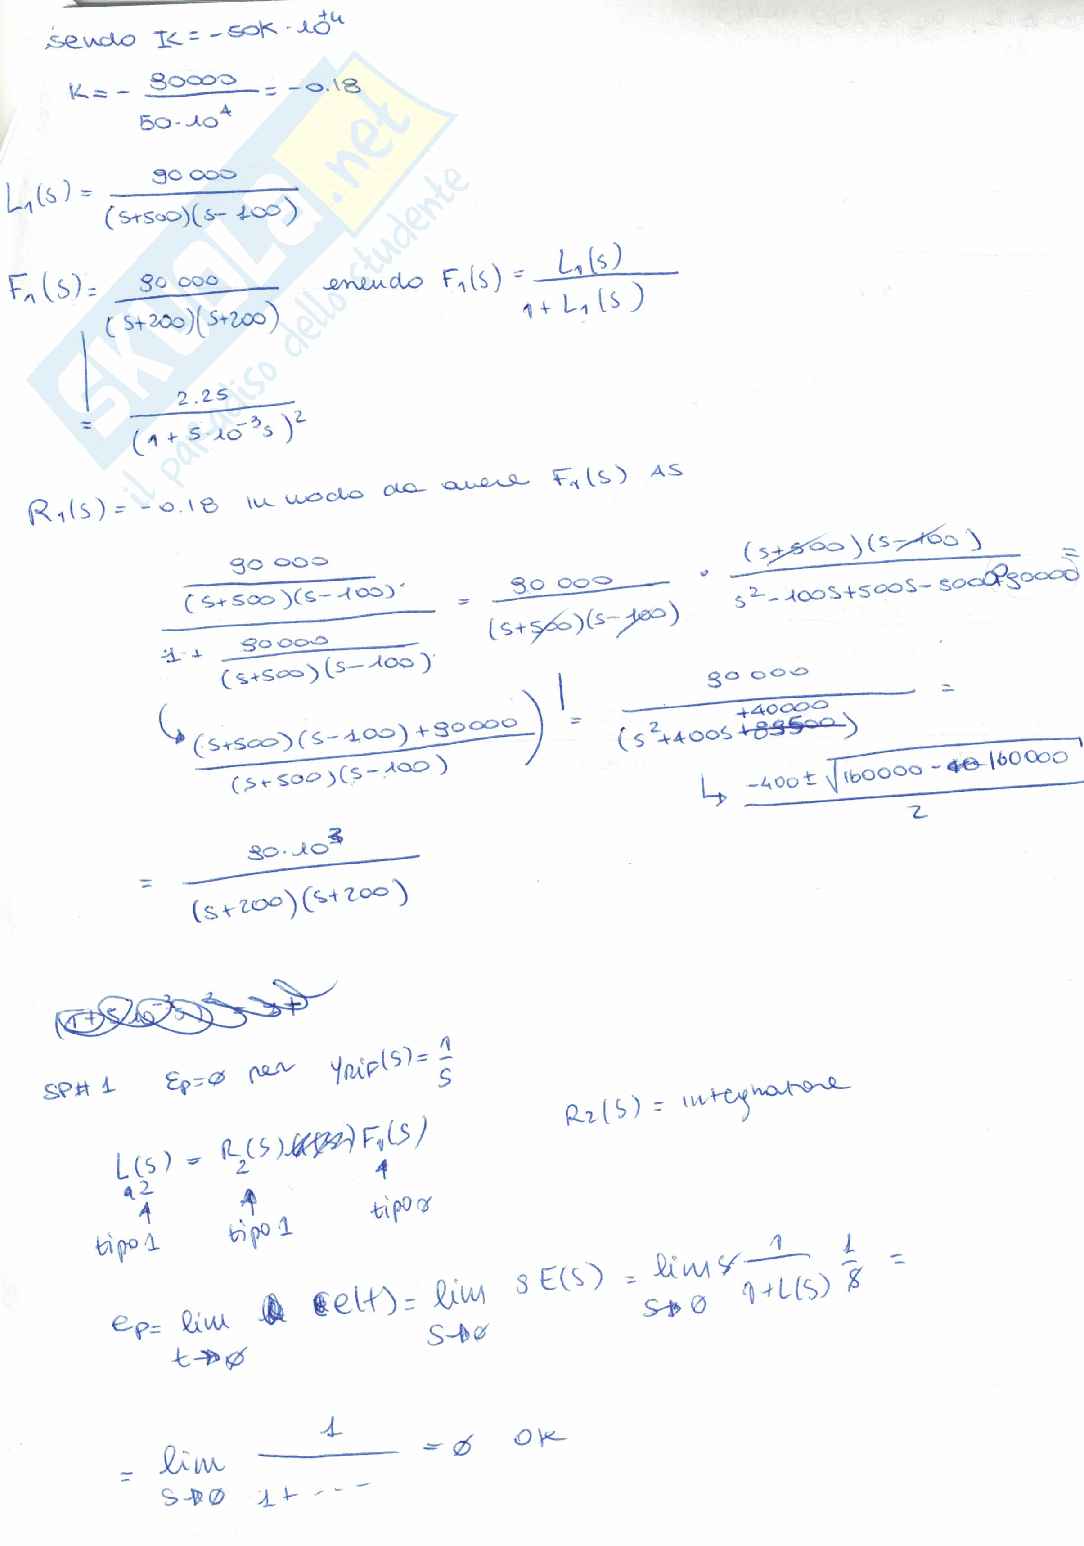 sendo K = -50K·10^+4
K = - 90000 / 50·10^4 = -0.18
L1(s) = 90 000 / (s+500)(s-100)
F1(s) = 90 000 / (s+200)(s+200) essendo F1(s) = L1(s) / 1+L1(s)
= 2.25 / (1+5·10^-3 s)^2
R1(s) = -0.18 in modo da avere F1(s) AS
90 000 / (s+500)(s-100) / 1 + 90000 / (s+500)(s-100) = 90 000 / (s+500)(s-100) · (s+500)(s-100) / s^2-100s+500s-50000+90000 =
(s+500)(s-100)+90000 / (s+500)(s-100) = 90 000 / (s^2+400s+40000) =
-400 ± √160000 - 160000 / 2
= 90·10^3 / (s+200)(s+200)
SP# 1 Ep=ø per YRIF(s) = 1/s
R2(s) = integratore
L2(s) = R2(s) F1(s)
tipo 1 tipo 1 tipo
ep = lim t→ø e(t) = lim s→ø s E(s) = lim s→ø s 1 / 1+L(s) 1/s =
= lim s→ø 1 / 1+--- = ø OK
SKUOLA.net
il paradiso dello studente